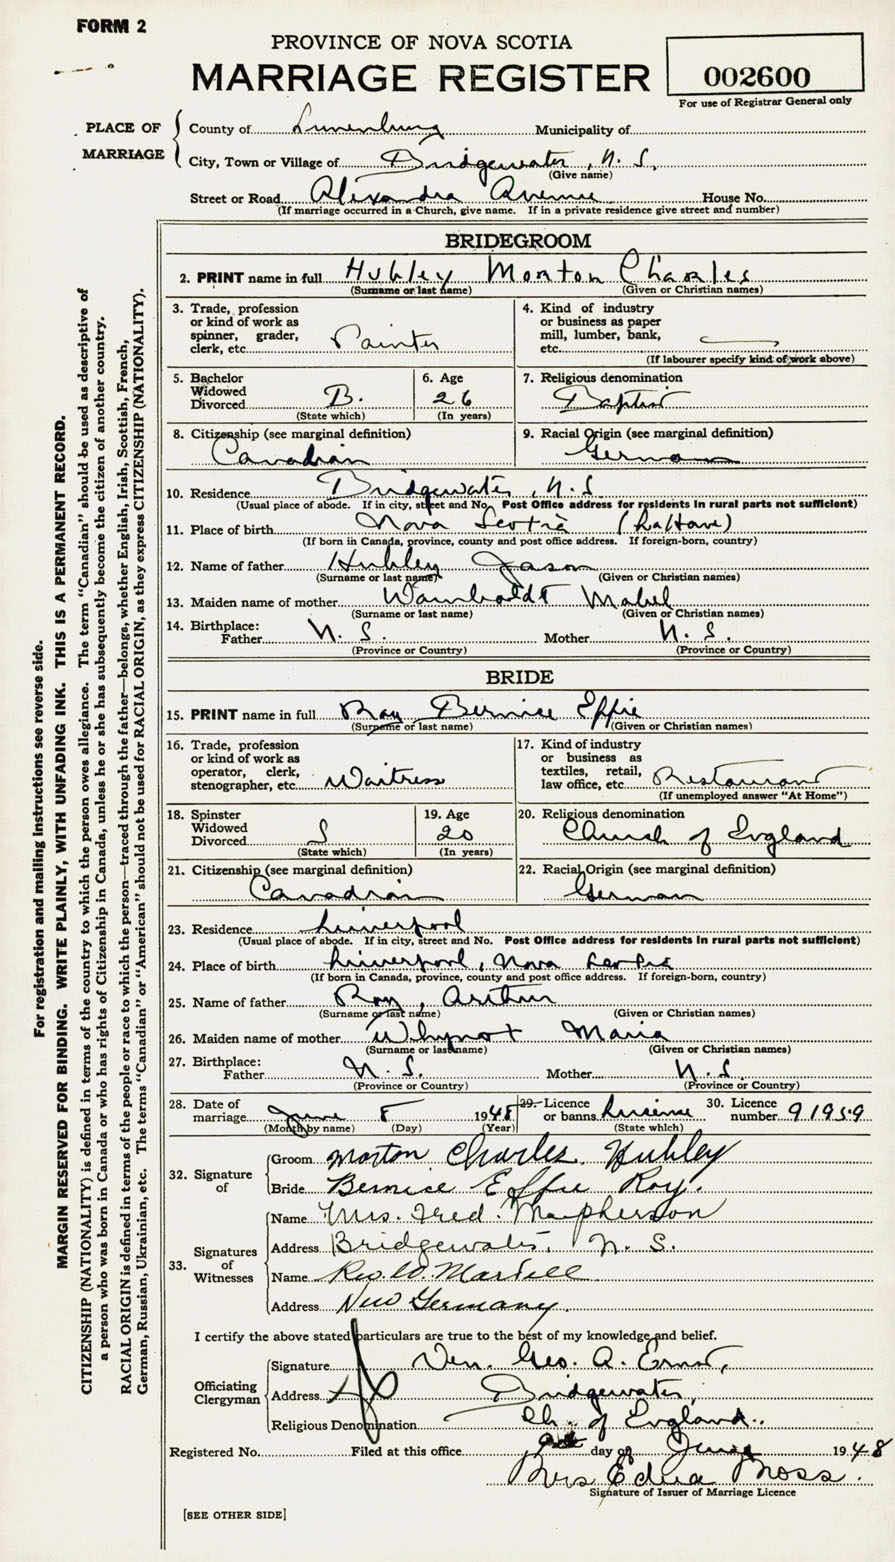 FORM 2
PROVINCE OF NOVA SCOTIA
MARRIAGE REGISTER
002600
For use of Registrar General only
PLACE OF MARRIAGE
County of Lunenburg Municipality of
City, Town or Village of Bridgewater, N. S.
(Give name)
Street or Road Alexandra Avenue House No.
(If marriage occurred in a Church, give name. If in a private residence give street and number)
BRIDEGROOM
2. PRINT name in full Hubley Morton Charles
(Surname or last name) (Given or Christian names)
3. Trade, profession or kind of work as spinner, grader, clerk, etc. Painter
4. Kind of industry or business as paper mill, lumber, bank, etc.
(If labourer specify kind of work above)
5. Bachelor Widowed Divorced B.
(State which)
6. Age 26
(In years)
7. Religious denomination
Baptist
8. Citizenship (see marginal definition)
Canadian
9. Racial Origin (see marginal definition)
German
10. Residence Bridgewater, N.S
(Usual place of abode. If in city, street and No. Post Office address for residents in rural parts not sufficient)
11. Place of birth Nova Scotia (LaHave)
(If born in Canada, province, county and post office address. If foreign-born, country)
12. Name of father Hubley Jason
(Surname or last name) (Given or Christian names)
13. Maiden name of mother Wamboldt Mabel
(Surname or last name) (Given or Christian names)
14. Birthplace:
Father N. S. Mother N. S.
(Province or Country) (Province or Country)
BRIDE
15. PRINT name in full Roy Bernice Effie
(Surname or last name) (Given or Christian names)
16. Trade, profession or kind of work as operator, clerk, stenographer, etc. Waitress
17. Kind of industry or business as textiles, retail, law office, etc. Restaurant
(If unemployed answer "At Home")
18. Spinster Widowed Divorced S
(State which)
19. Age 20
(In years)
20. Religious denomination
Church of England
21. Citizenship (see marginal definition)
Canadian
22. Racial Origin (see marginal definition)
German
23. Residence Liverpool
(Usual place of abode. If in city, street and No. Post Office address for residents in rural parts not sufficient)
24. Place of birth Liverpool, Nova Scotia
(If born in Canada, province, county and post office address. If foreign-born, country)
25. Name of father Roy, Arthur
(Surname or last name) (Given or Christian names)
26. Maiden name of mother Whynot Maria
(Surname or last name) (Given or Christian names)
27. Birthplace:
Father N. S. Mother N. S.
(Province or Country) (Province or Country)
28. Date of marriage June 8 1948
(Month by name) (Day) (Year)
29. Licence or banns License
(State which)
30. Licence number 91959
32. Signature of
Groom Morton Charles Hubley
Bride Bernice Effie Roy.
33. Signatures of Witnesses
Name Mrs. Fred. Macpherson
Address Bridgewater, N. S.
Name Rev. W. Martell
Address New Germany.
I certify the above stated particulars are true to the best of my knowledge and belief.
Officiating Clergyman
Signature Ven. Geo. A. Ernst,
Address Bridgewater,
Religious Denomination Ch. of England.
Registered No. Filed at this office day of June 1948
Mrs Edna Moss.
Signature of Issuer of Marriage Licence
[SEE OTHER SIDE]
For registration and mailing instructions see reverse side.
MARGIN RESERVED FOR BINDING. WRITE PLAINLY, WITH UNFADING INK. THIS IS A PERMANENT RECORD.
CITIZENSHIP (NATIONALITY) is defined in terms of the country to which the person owes allegiance. The term "Canadian" should be used as descriptive of
a person who was born in Canada or who has rights of Citizenship in Canada, unless he or she has subsequently become the citizen of another country.
RACIAL ORIGIN is defined in terms of the people or race to which the person—traced through the father—belongs, whether English, Irish, Scottish, French,
German, Russian, Ukrainian, etc. The terms "Canadian" or "American" should not be used for RACIAL ORIGIN, as they express CITIZENSHIP (NATIONALITY).